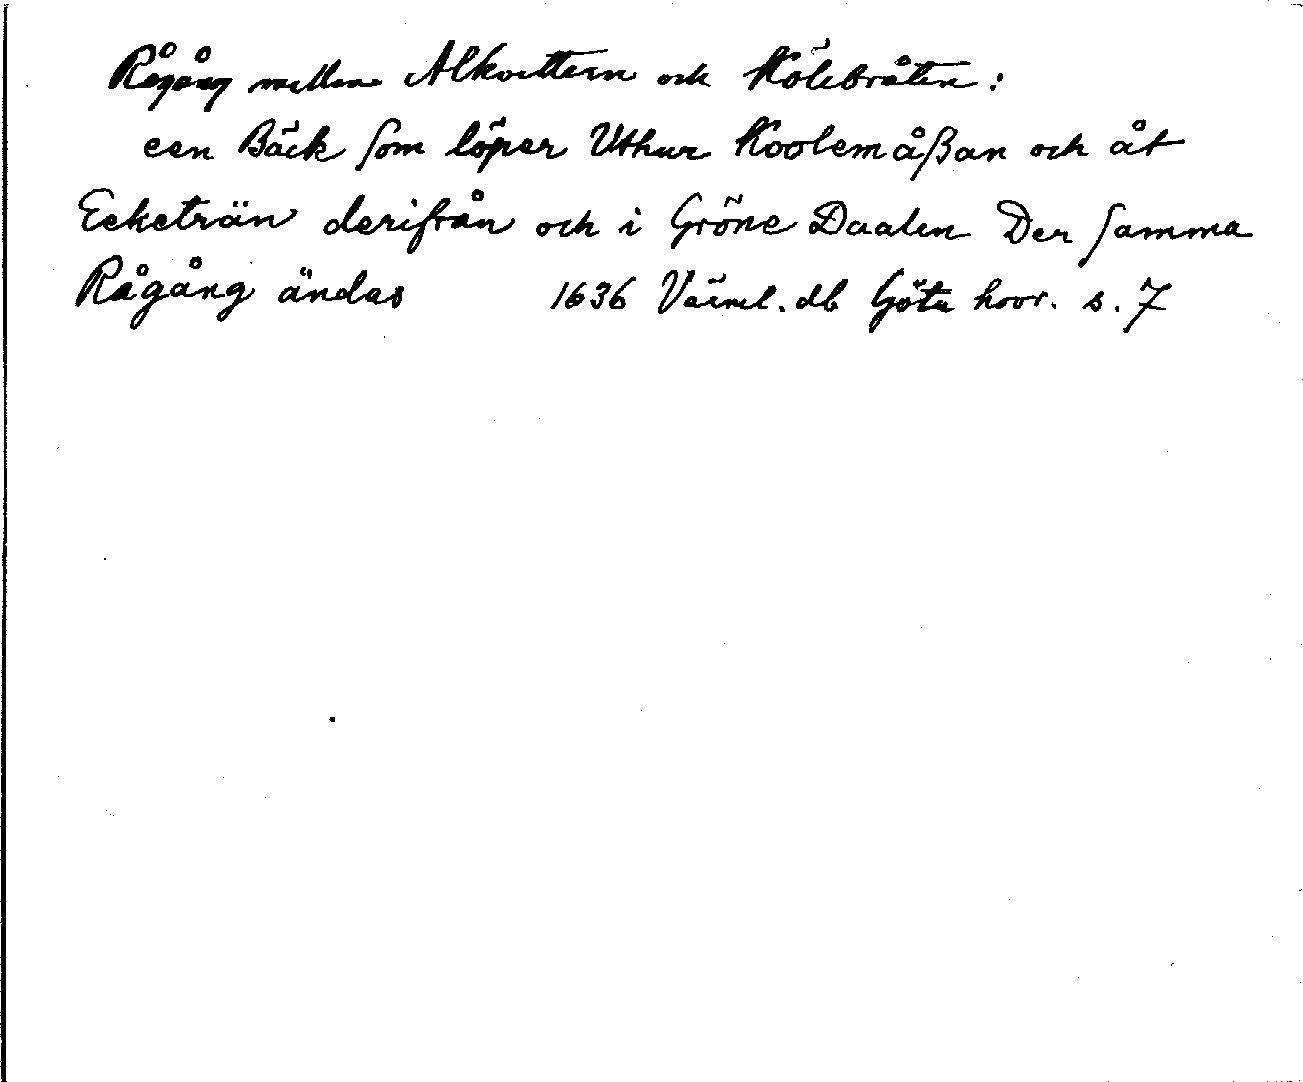 Rågång mellan Alkvettern och Kölebråten:
een Bäck som löper Uthur Koolemåßan och åt
Eeketrän derifrån och i Gröne Daalen Der samma
Rågång ändas 1636 Värml. db Göta hovr. s. 7